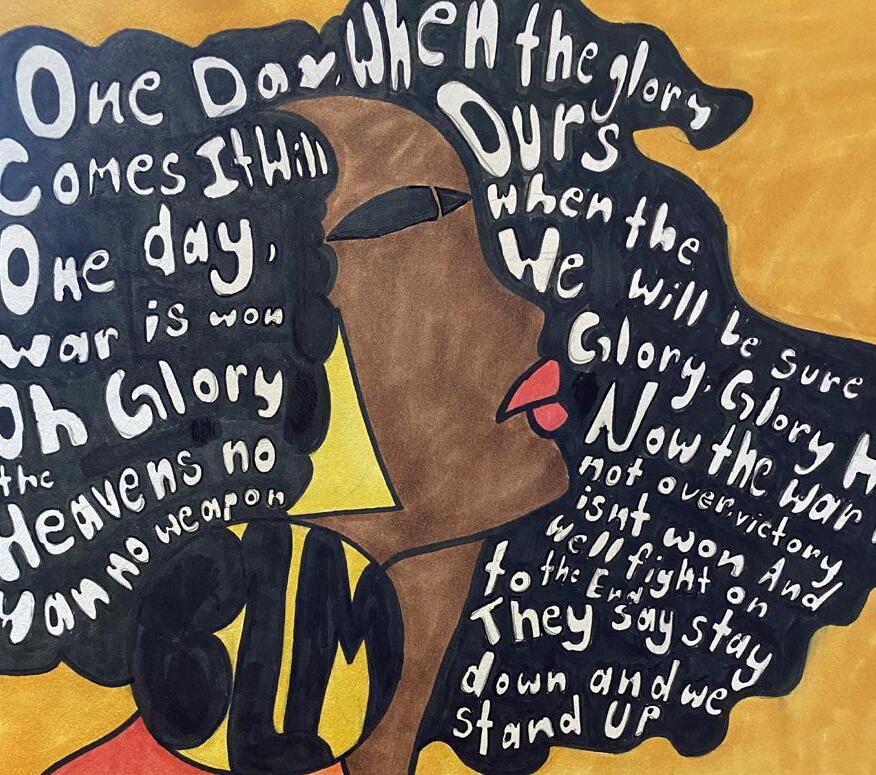 One Day, When the glory
Comes It Will
Ours
One day,
when the
war is won
We will be sure
Oh Glory
Glory, Glory H
the
Heavens no
Now the war
not over, victory
man no weapon
isnt won And
we'll fight on
to the End
They say stay
down and we
stand UP
BLM